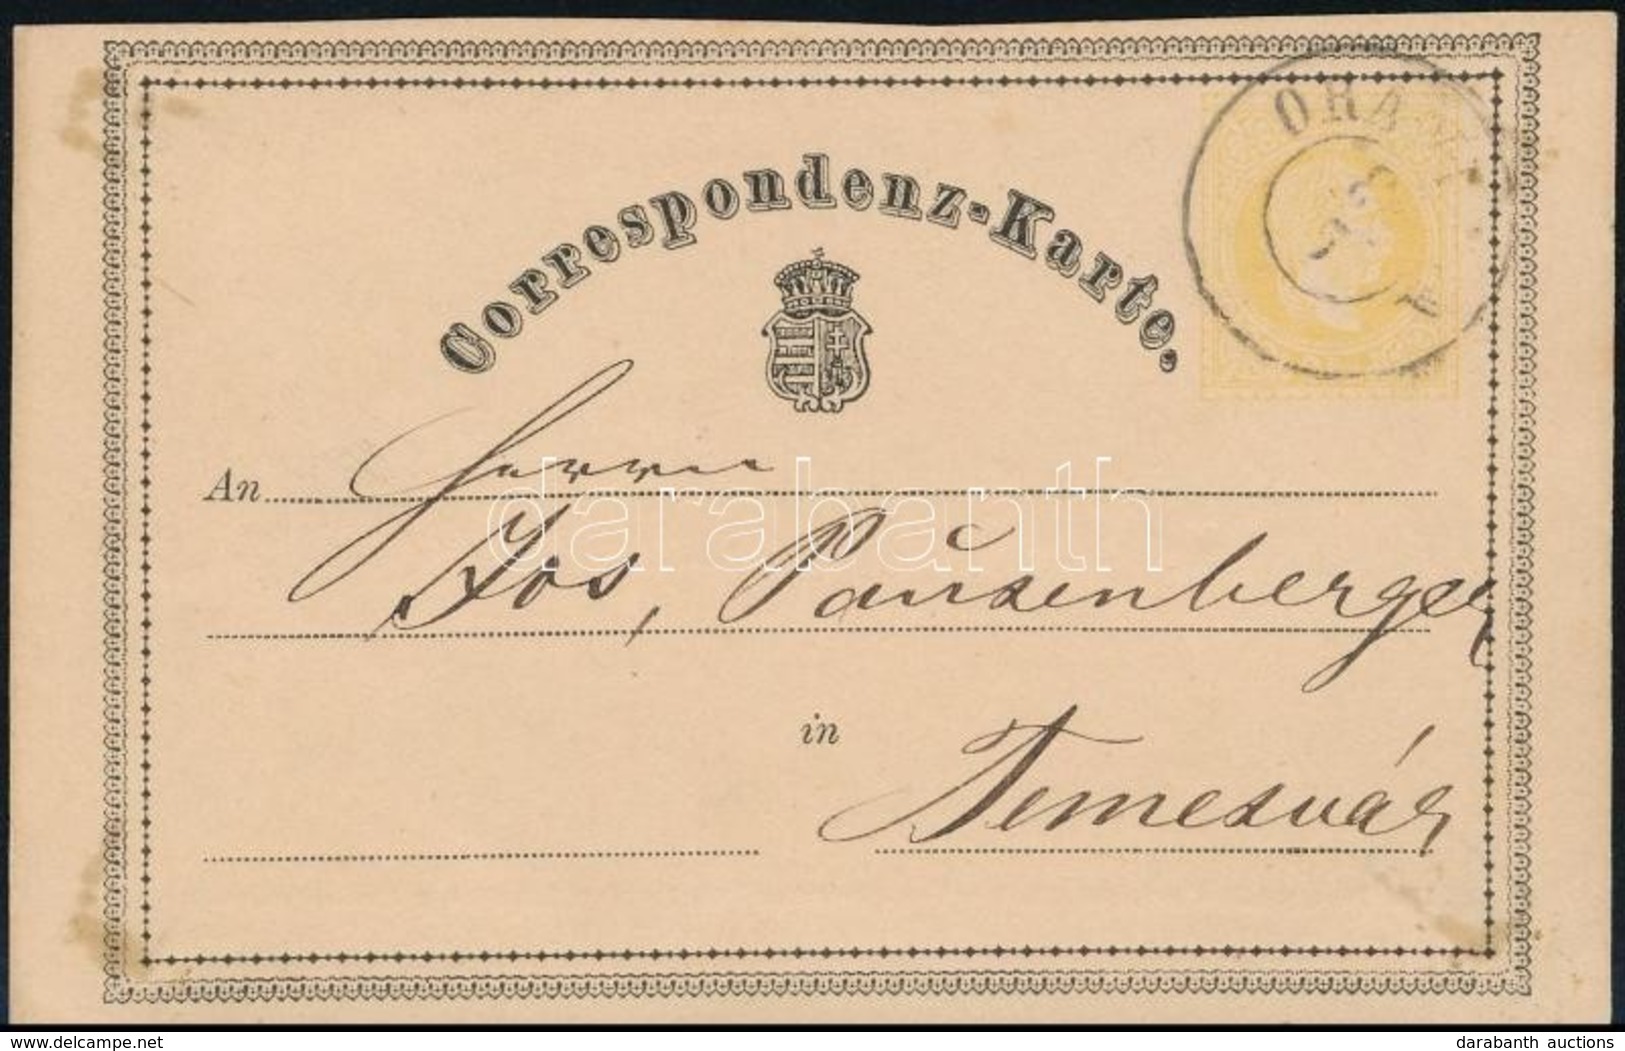 Correspondenz-Karte.
An Herrn
Jos, Pauzenberger
in
Temesvár
darabanth
the-pmm.net
darabanth auctions